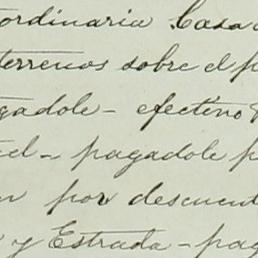 ordinaria Casa
terrenos sobre el p
gadole - efectivo
el - pagadole p
por descuent
y Estrada - pag